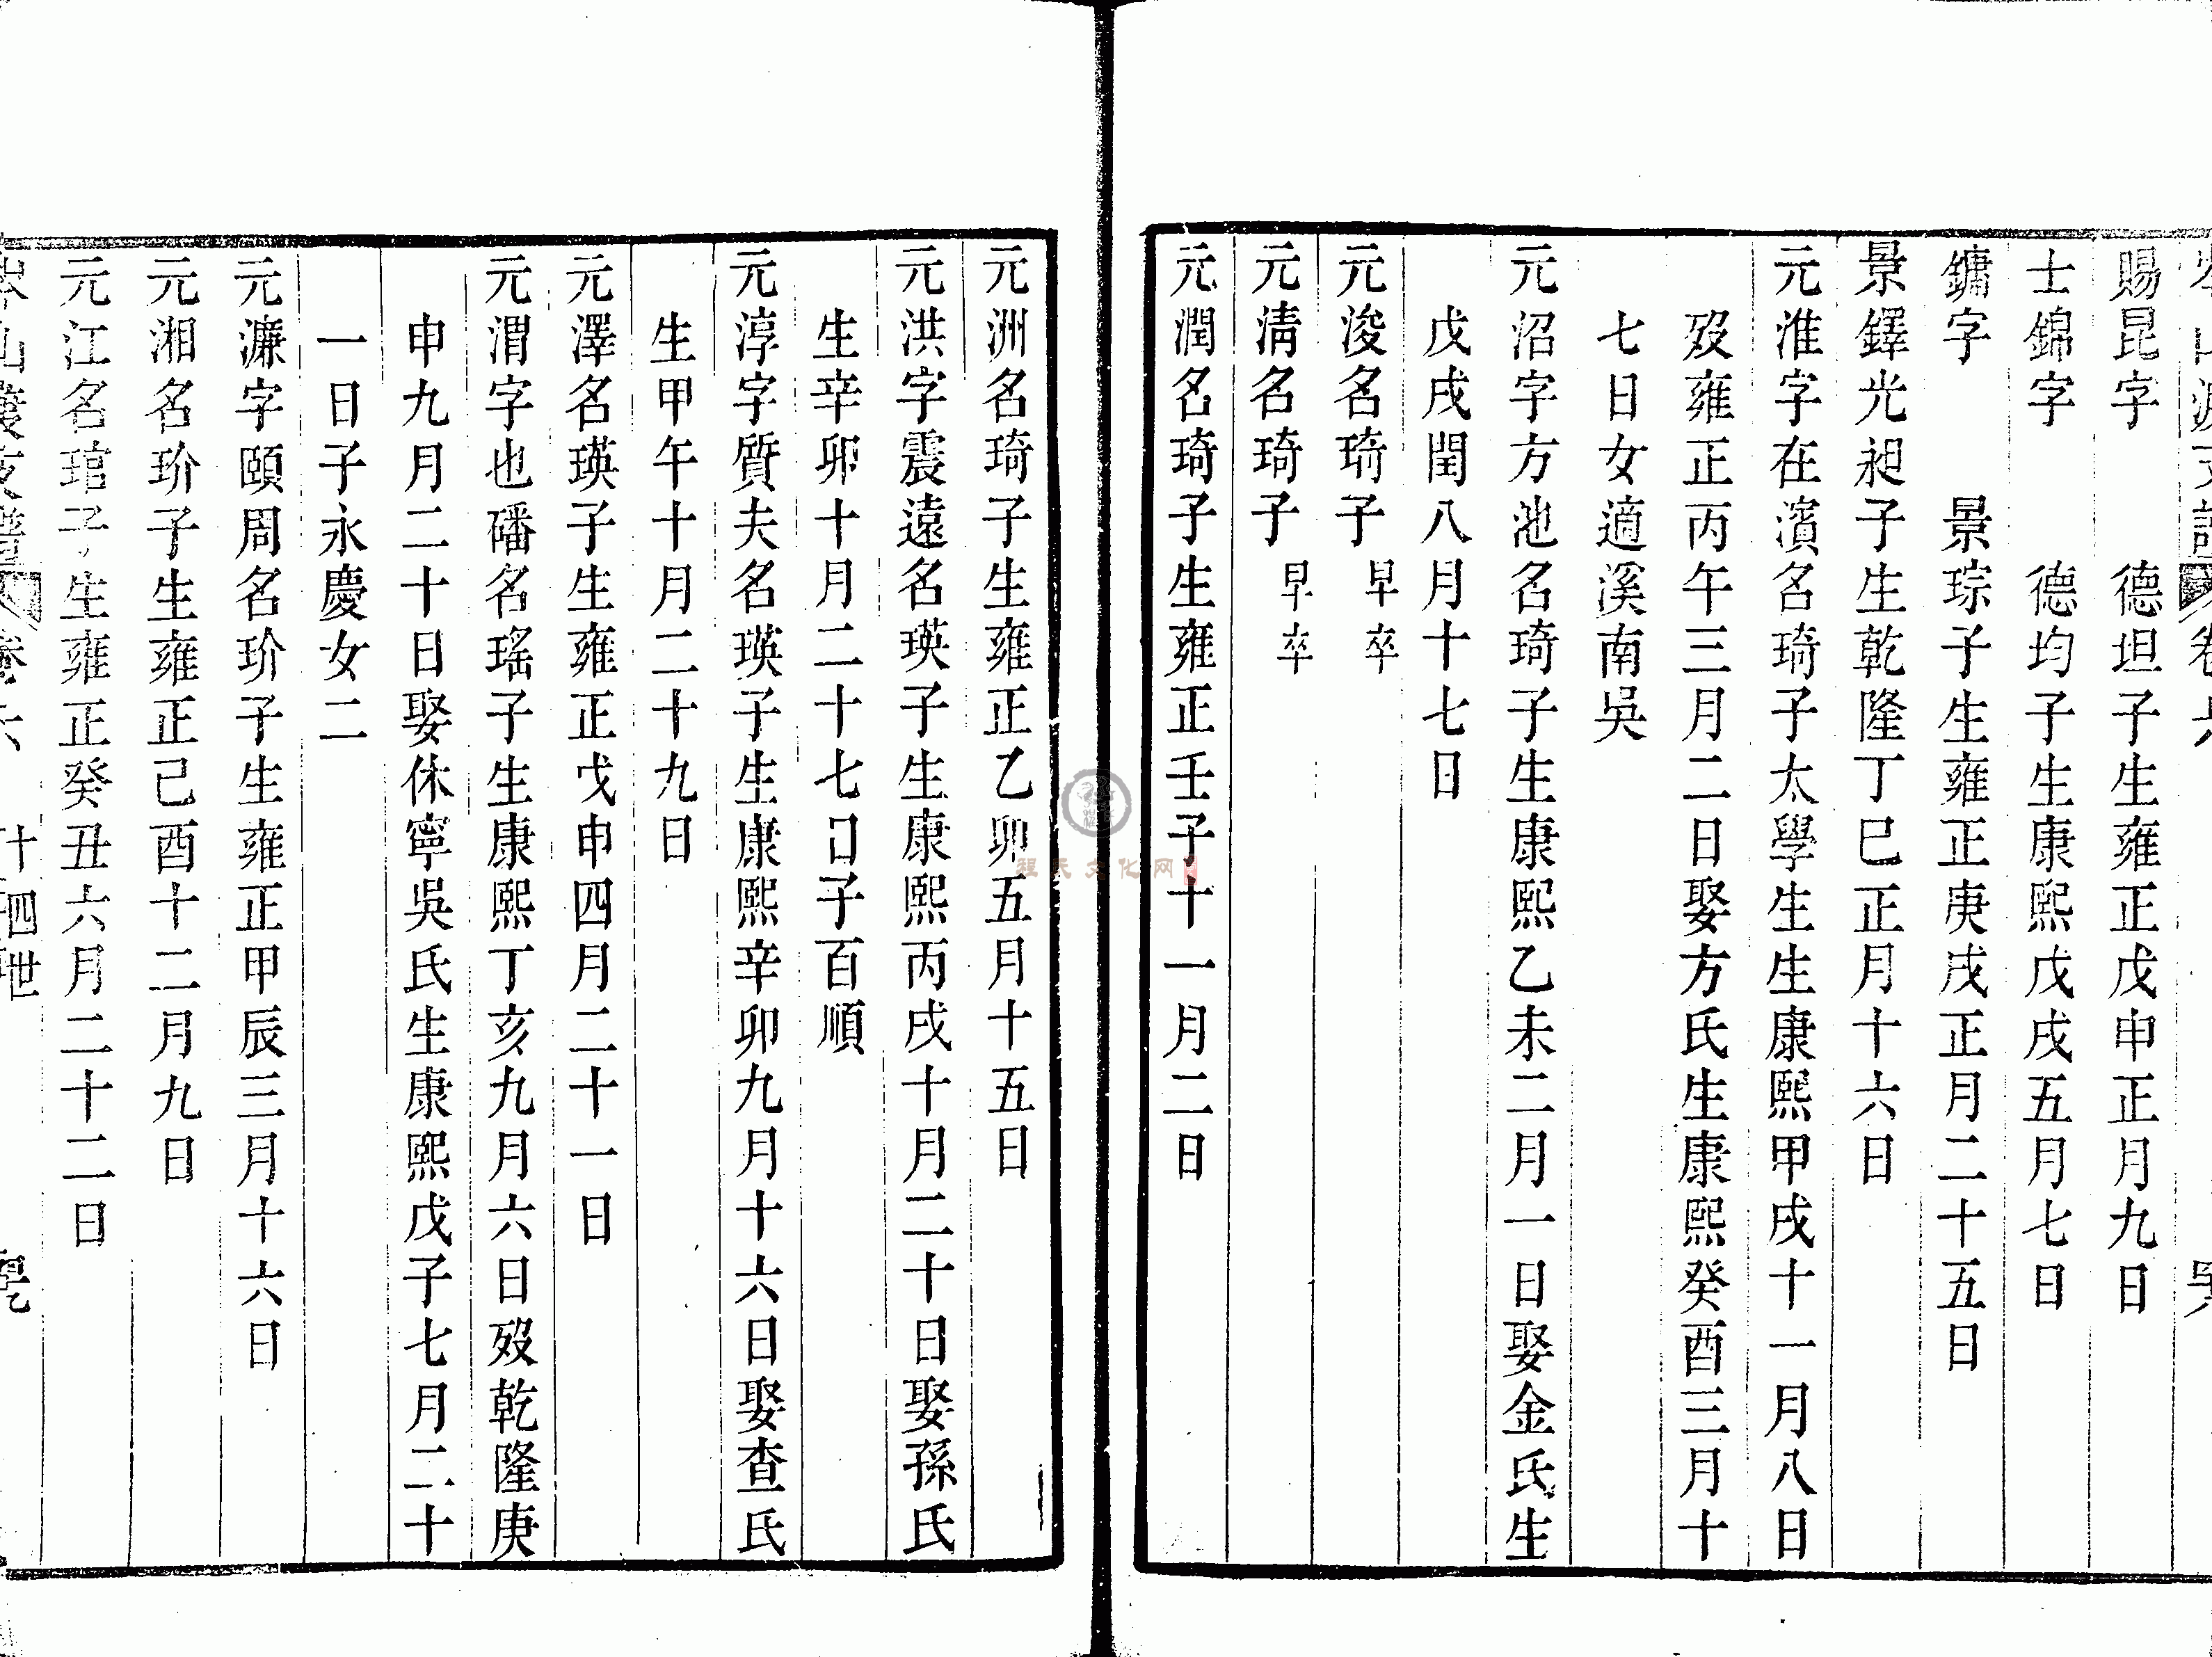 賜昆字　德坦子生雍正戊申正月九日
士錦字　德均子生康熙戊戌五月七日
鏞字　景琮子生雍正庚戌正月二十五日
景鐸光昶子生乾隆丁巳正月十六日
元淮字在濱名琦子太學生生康熙甲戌十一月八日
歿雍正丙午三月二日娶方氏生康熙癸酉三月十
七日女適溪南吳
元沼字方池名琦子生康熙乙未二月一日娶金氏生
戊戌閏八月十七日
元浚名琦子早卒
元淸名琦子早卒
元潤名琦子生雍正壬子十一月二日
元洲名琦子生雍正乙卯五月十五日
元洪字震遠名瑛子生康熙丙戌十月二十日娶孫氏
生辛卯十月二十七日子百順
元淳字質夫名瑛子生康熙辛卯九月十六日娶查氏
生甲午十月二十九日
元澤名瑛子生雍正戊申四月二十一日
元渭字也磻名瑤子生康熙丁亥九月六日歿乾隆庚
申九月二十日娶休寧吳氏生康熙戊子七月二十
一日子永慶女二
元濂字頤周名玠子生雍正甲辰三月十六日
元湘名玠子生雍正己酉十二月九日
元江名琯子生雍正癸丑六月二十二日
十四世
程氏文化网